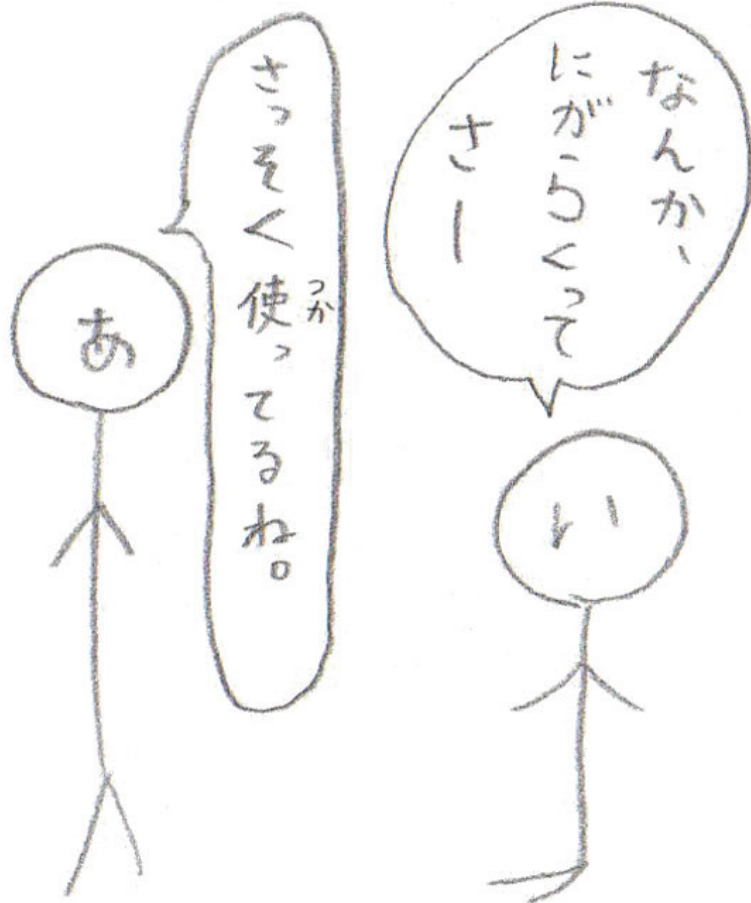 なんか、
にがらくって
さー
い
さっそく使ってるね。
つか
あ